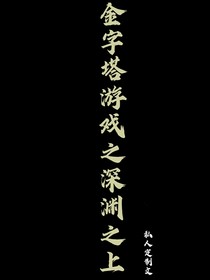 金字塔游戏之深渊之上
私人定制文